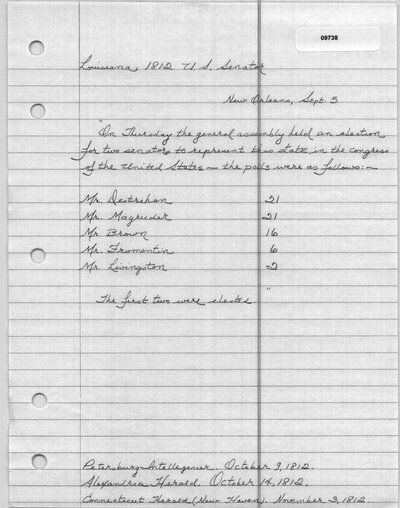 09738
Louisiana 1812 U.S. Senator
New Orleans, Sept. 5
"On Thursday the general assembly held an election
for two senators to represent this state in the congress
of the United States — the polls were as follows: —
Mr. Destrehan 21
Mr. Magruder 21
Mr. Brown 16
Mr. Fromentin 6
Mr. Livingston 2
The first two were elected."
Petersburg Intelligencer. October 9, 1812.
Alexandria Herald. October 14, 1812.
Connecticut Herald (New Haven). November 3, 1812